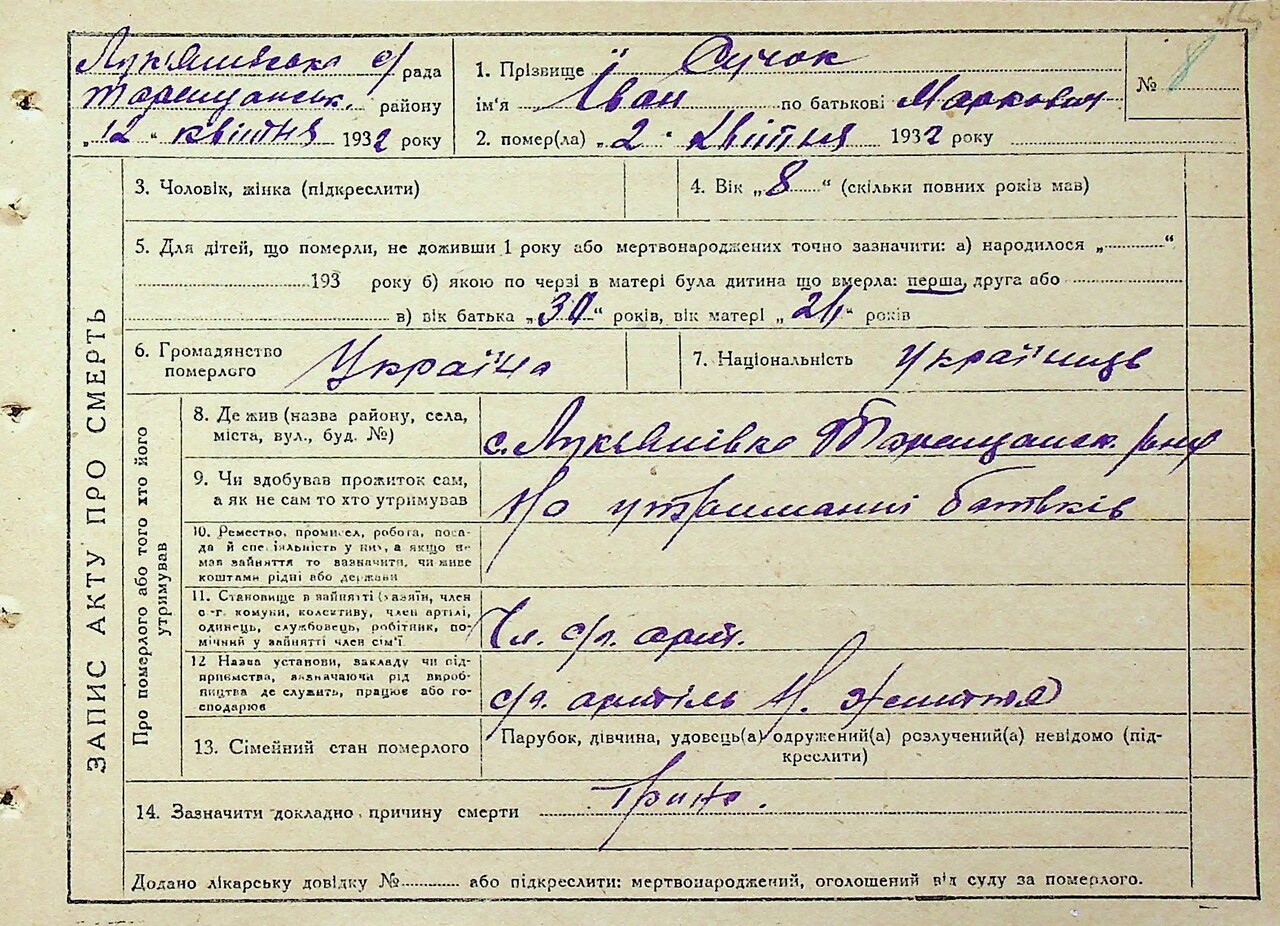 Лук'янівська с/рада
Таращанськ. району
„12“ квітня 1932 року
1. Прізвище Сучок
ім'я Іван по батькові Маркович
2. помер(ла) „2“ квітня 1932 року
№ 8
ЗАПИС АКТУ ПРО СМЕРТЬ
3. Чоловік, жінка (підкреслити)
4. Вік „8“ (скільки повних років мав)
5. Для дітей, що померли, не доживши 1 року або мертвонароджених точно зазначити: а) народилося „..........“
193 року б) якою по черзі в матері була дитина що вмерла: перша, друга або
в) вік батька „30“ років, вік матері „26“ років
6. Громадянство
померлого Україна
7. Національність українець
Про померлого або того хто його
утримував
8. Де жив (назва району, села,
міста, вул., буд. №)
с. Лук'янівка Таращанськ. р-ну
9. Чи здобував прожиток сам,
а як не сам то хто утримував
На утриманні батьків
10. Ремество, промисел, робота, поса-
да й спеціяльність у них, а якщо не
мав зайняття то зазначити, чи живе
коштами рідні або держави
11. Становище в зайнятті (хазяїн, член
с-г. комуни, колективу, член артілі,
одинець, службовець, робітник, по-
мічний у зайнятті член сім'ї
Чл. с/г. арт.
12 Назва установи, закладу чи під-
приємства, зазначаючи рід вироб-
ництва де служить, працює або го-
сподарює
с/г. артіль Н. життя
13. Сімейний стан померлого
Парубок, дівчина, удовець(а) одружений(а) розлучений(а) невідомо (під-
креслити)
14. Зазначити докладно причину смерти
Додано лікарську довідку №.......... або підкреслити: мертвонароджений, оголошений від суду за померлого.